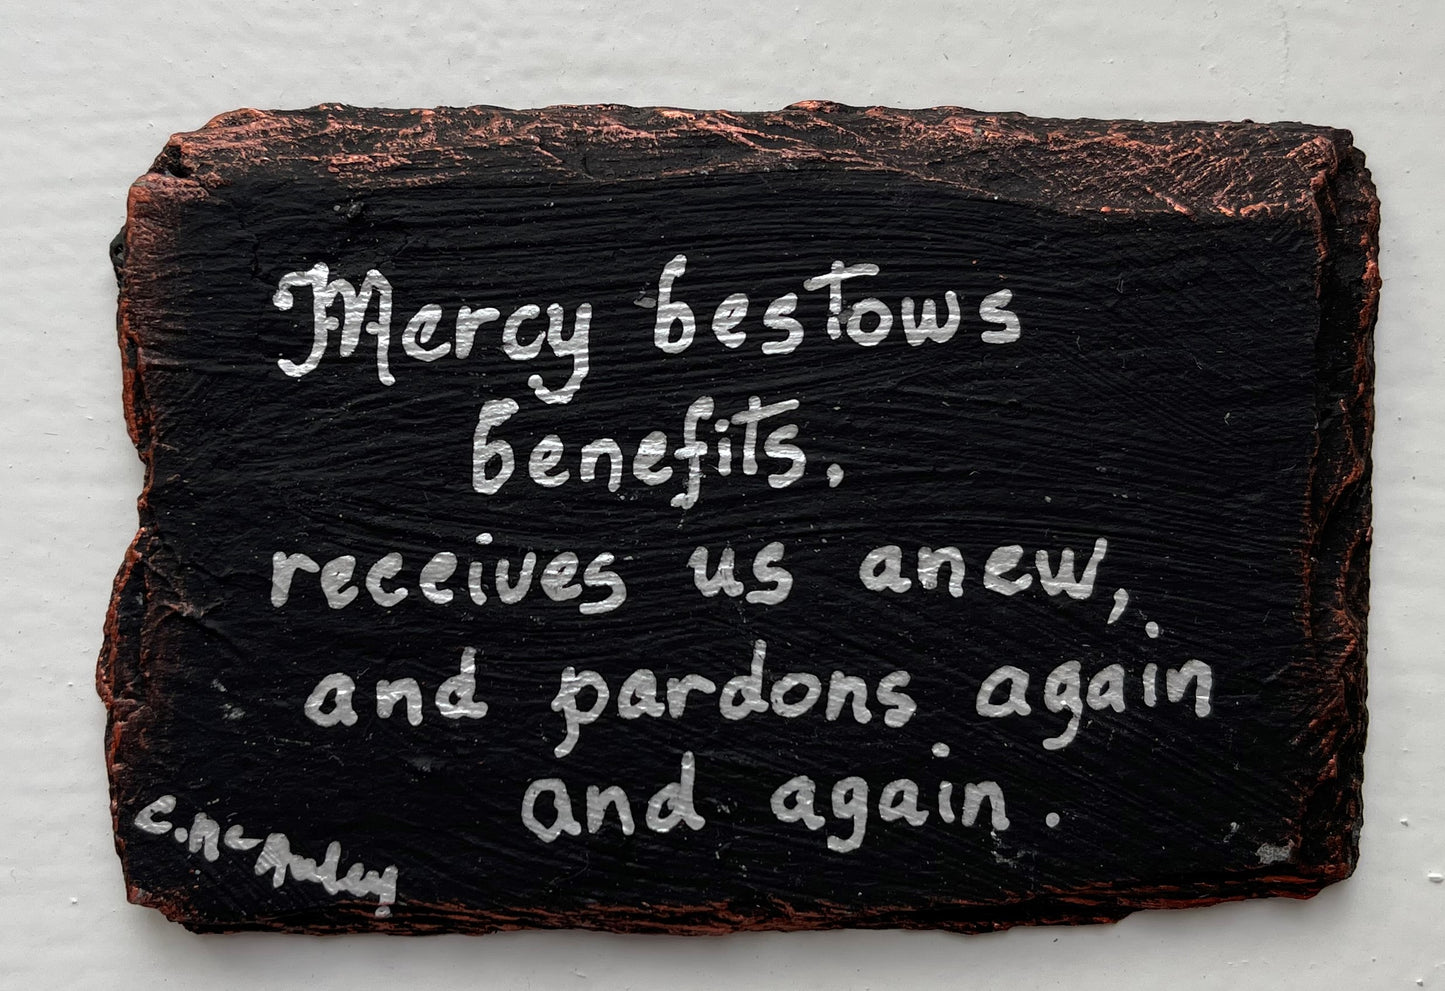 Mercy bestows
benefits,
receives us anew,
and pardons again
and again.
C. McAuley